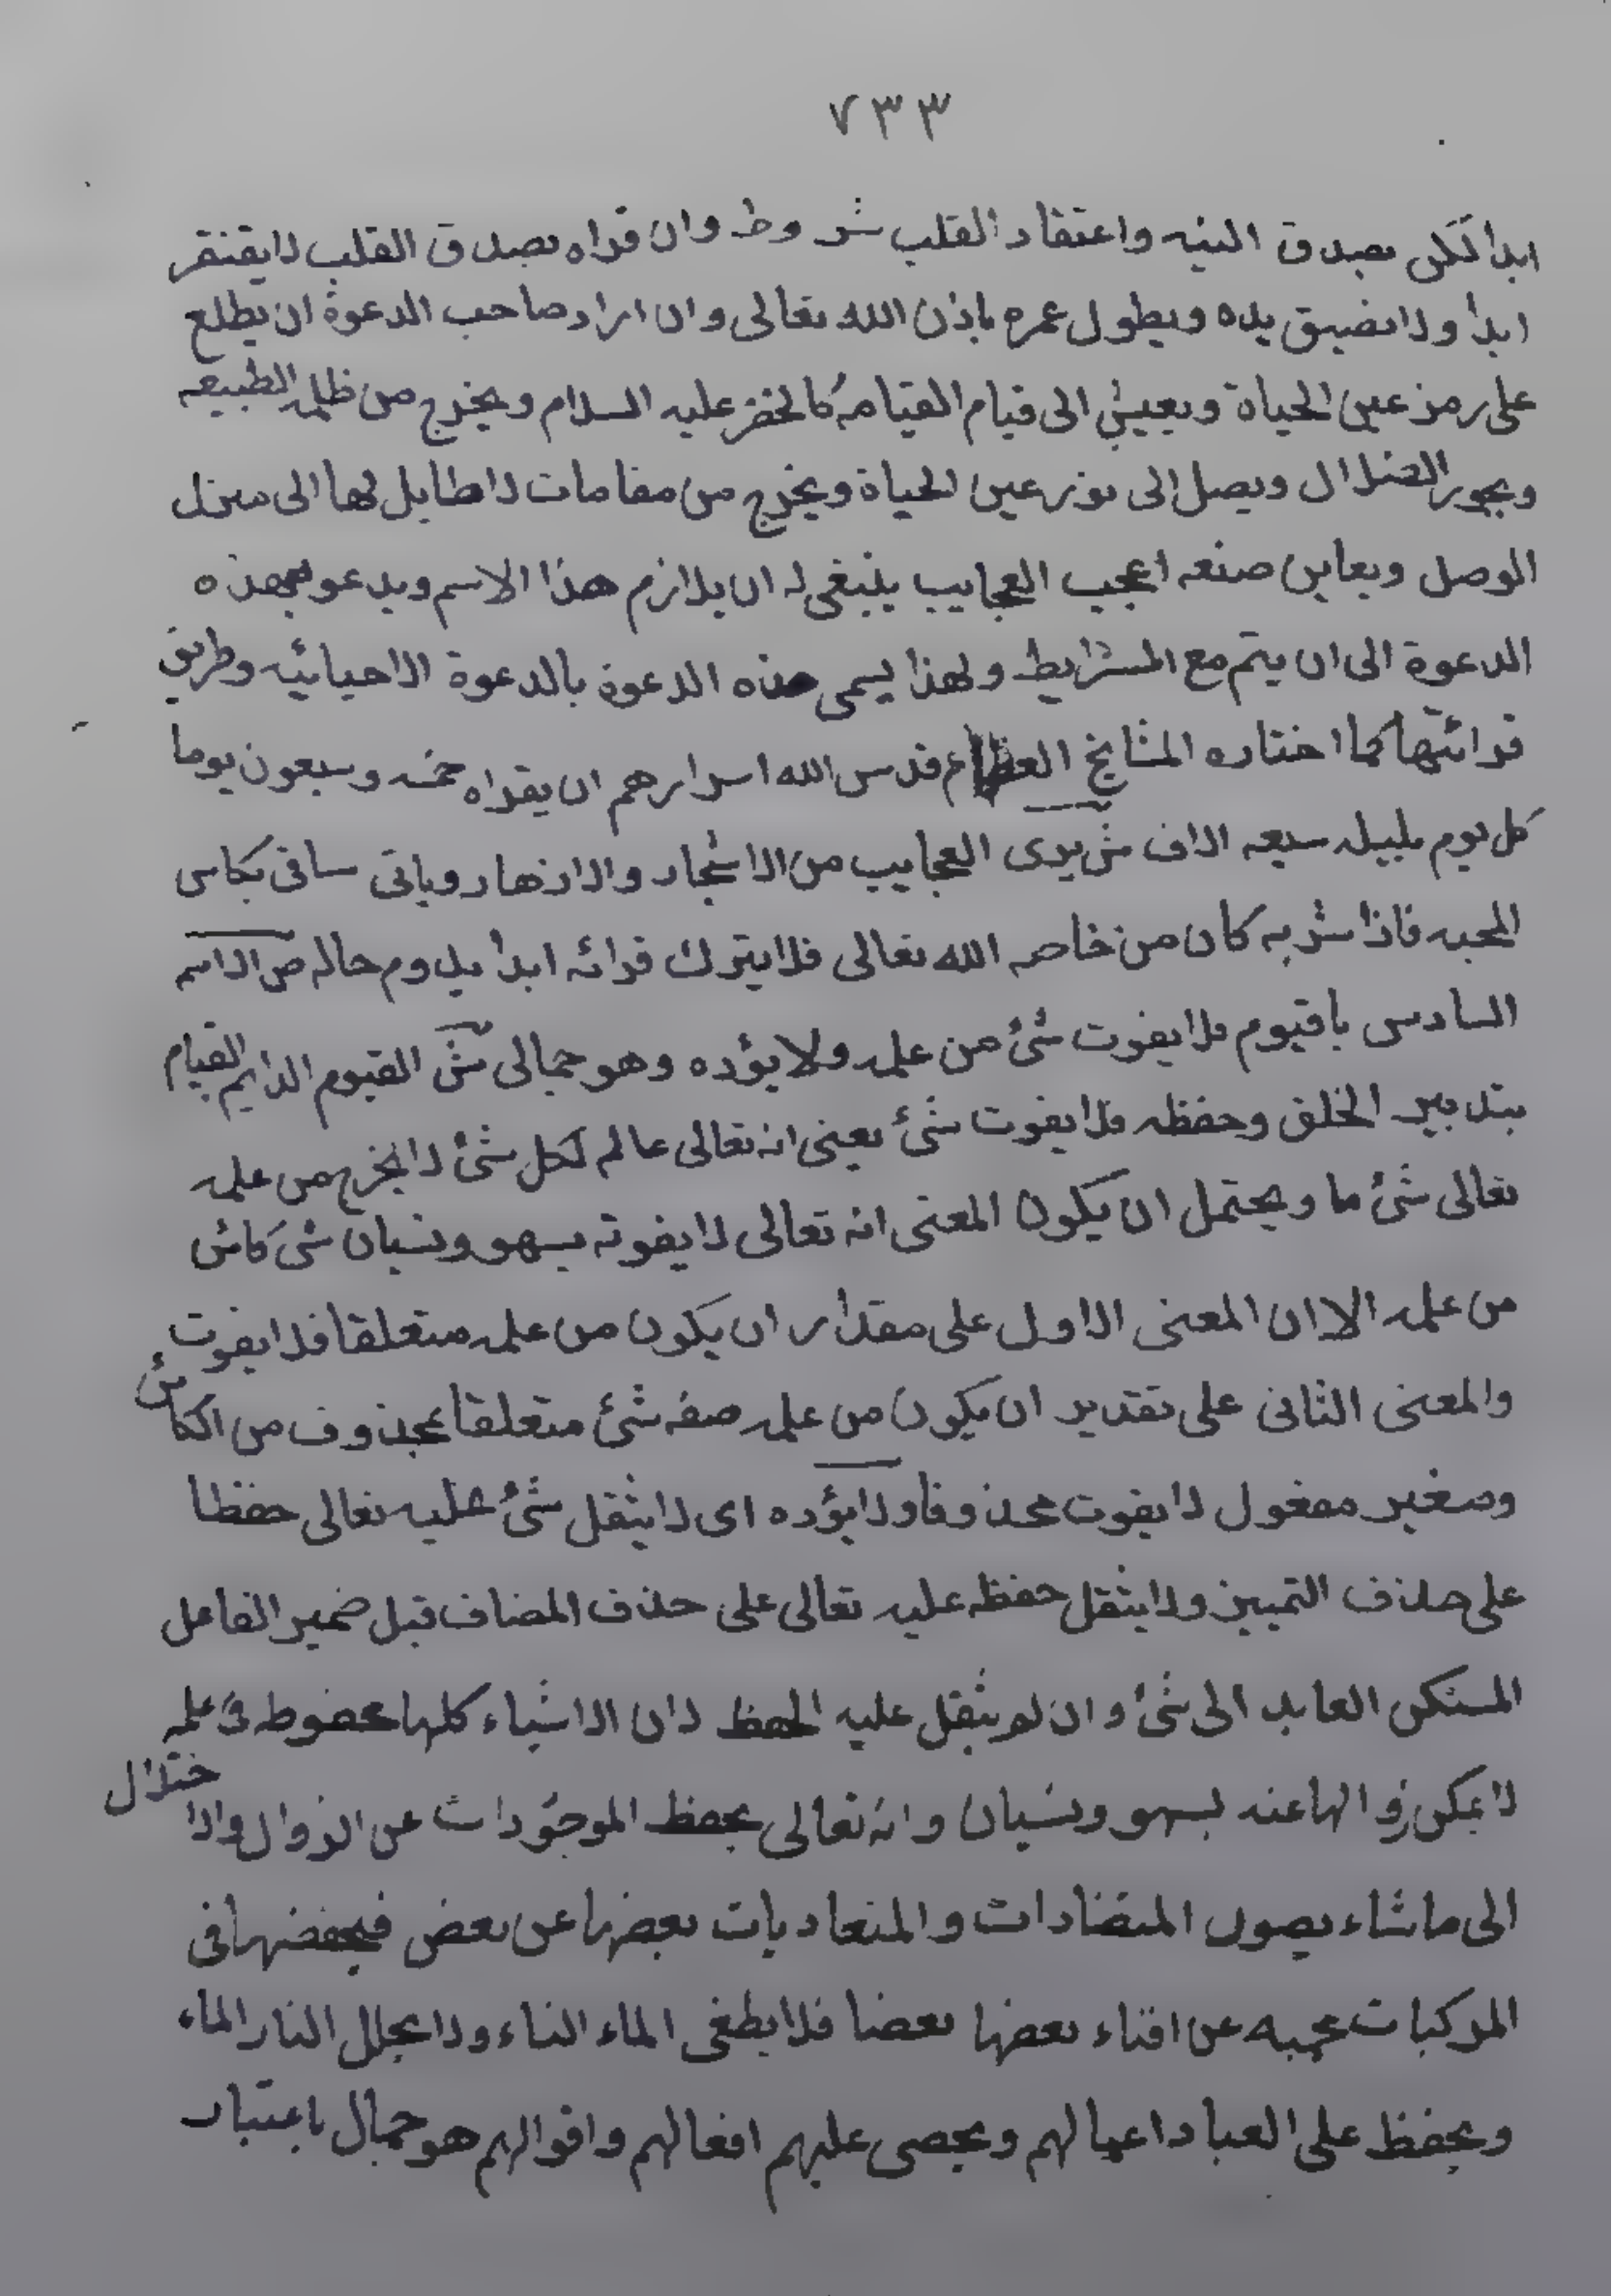 ٧٣٣
ابدا لكن بصدق النيه واعتقاد القلب شروط وان قراه بصدق القلب لايفتقر
ابدا ولا تضيق يده ويطول عمره باذن الله تعالى وان اراد صاحب الدعوة ان يطلع
على رمز عين الحياة ويعيش الى قيام القيامه كالخضر عليه السلام ويخرج من ظلمه الطبيعه
وبحور الضلال ويصل الى نور عين الحياة ويخرج من مقامات لاطايل لها الى منزل
الوصل ويعاين صنعه اعجب العجايب ينبغى له ان يلازم هذا الاسم ويدعو بهذه
الدعوة الى ان يتم مع الشرايط ولهذا يسمى هذه الدعوة بالدعوة الاحيائيه وطريق
قرائتها كما اختاره المشايخ العظام قدس الله اسرارهم ان يقراه خمسه وسبعون يوما
كل يوم بليله سبعه الاف ش يرى العجايب من الاشجار والازهار وياتى ساقى بكاس
المحبه فاذا شربه كان من خاصه الله تعالى فلا يترك قرائه ابدا يدوم حاله ص الاسم
السادس ياقيوم فلا يفوت شئ من علمه ولا يؤده وهو جمالى ش القيوم الدايم القيام
بتدبير الخلق وحفظه فلا يفوت شئ يعنى انه تعالى عالم لكل شئ لا يخرج من علمه
تعالى شئ ما ويحتمل ان يكون المعنى انه تعالى لا يفوته بسهو ونسيان شئ كائن
من علمه الا ان المعنى الاول على مقدار ان يكون من علمه متعلقا فلا يفوت
والمعنى الثانى على تقدير ان يكون من علمه صفه شئ متعلقا بمحذوف من الكائن
وصغير مفعول لا يفوت محذوفا ولا يؤده اى لا يثقل شئ عليه تعالى حفظا
على حذف التمييز ولا يثقل حفظه عليه تعالى على حذف المضاف قبل ضمير الفاعل
المستكن العايد الى شئ وان لم يثقل عليه الحفظ لان الاشياء كلها محضوطه فى علمه
لا يمكن زوالها عنه بسهو ونسيان وانه تعالى يحفظ الموجودات عن الزوال والاختلال
الى ما شاء يصون المتضادات والمتعاديات بعضها عن بعض فيحفضها فى
المركبات محميه عن افناء بعضها بعضا فلا يطغى الماء الناء ولا يحلل النار الماء
ويحفظ على العباد اعمالهم ويحصى عليهم افعالهم واقوالهم هو جمال باعتبار